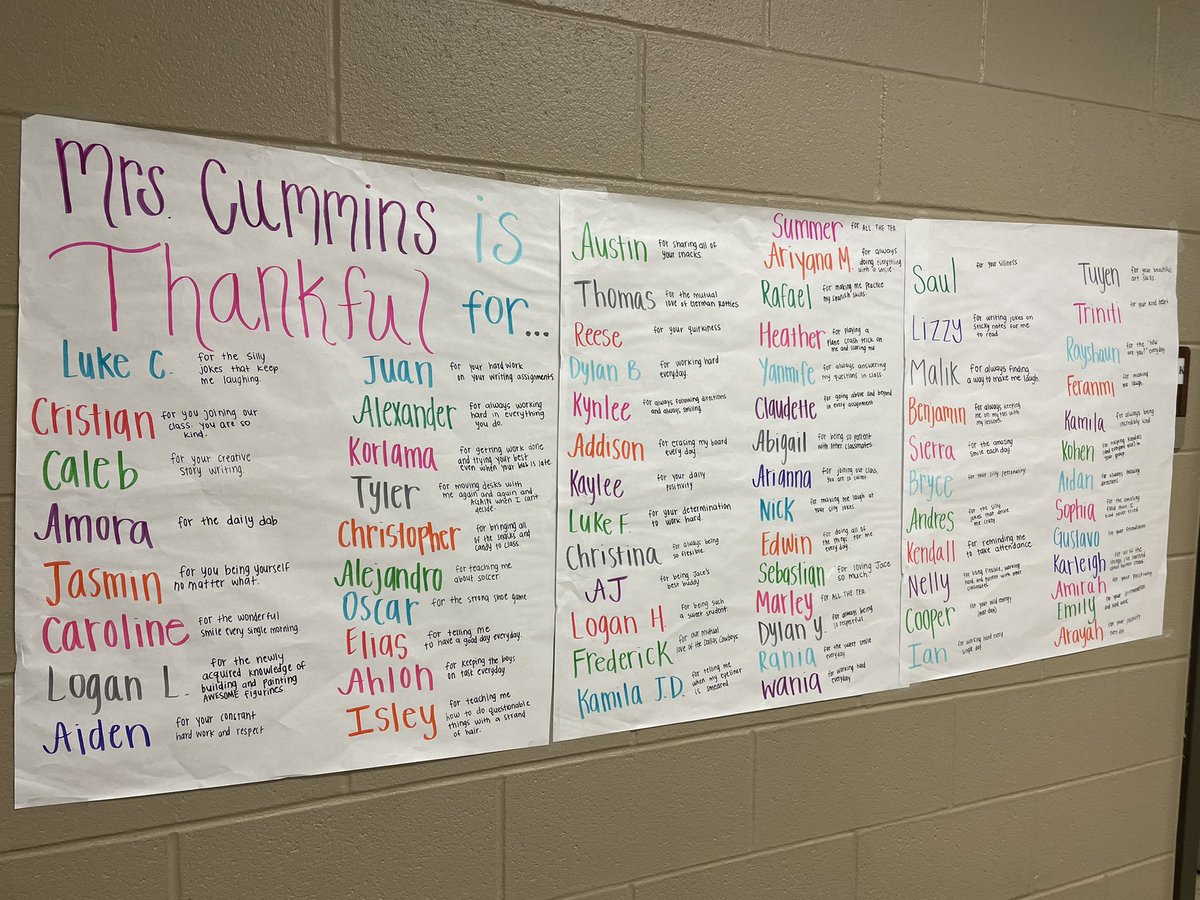 Mrs. Cummins is
Thankful for...
Luke C. for the silly
jokes that keep
me laughing.
Cristian for you joining our
class. you are so
kind.
Caleb for your creative
story writing.
Amora for the daily dab
Jasmin for you being yourself
no matter what.
Caroline for the wonderful
smile every single morning.
Logan L. for the newly
acquired knowledge of
building and painting
AWESOME figurines
Aiden for your constant
hard work and respect
Juan for your hard work
on your writing assignments
Alexander for always working
hard in everything
you do.
Korlama for getting work done
and trying your best
even when your bus is late.
Tyler for moving desks with
me again and again and
AGAIN when I can't
decide.
Christopher for bringing all
of the snacks and
candy to class.
Alejandro for teaching me
about soccer.
Oscar for the strong shoe game
Elias for telling me
to have a good day everyday.
Ahlon for keeping the boys
on task everyday
Isley for teaching me
how to do questionable
things with a strand
of hair.
Austin for sharing all of
your snacks.
Thomas for the mutual
love of German Rotties
Reese for your quirkiness.
Dylan B. for working hard
everyday.
Kynlee for always following directions
and always smiling.
Addison for erasing my board
every day.
Kaylee for your daily
positivity
Luke F. for your determination
to work hard.
Christina for always being
so flexible.
AJ for being Jace's
best buddy
Logan H for being such
a sweet student.
Frederick for our mutual
love of the Dallas Cowboys
Kamila J.D. for telling me
when my eyeliner
is smeared
Summer for ALL THE TEA
Ariyana M. for always
doing everything
with a smile
Rafael for making me practice
my Spanish skills.
Heather for playing a
plane crash trick on
me and scaring me
Yanmife for always answering
my questions in class.
Claudette for going above and beyond
in every assignment
Abigail for being so patient
with other classmates.
Arianna for joining our class,
you are so sweet
Nick for making me laugh at
your silly jokes.
Edwin for doing all of
the things for me
every day.
Sebastian for loving Jace
so much.
Marley for ALL THE TEA
Dylan Y. for always being
so respectful.
Rania for the sweet smile
everyday.
Wania for working hard
everyday
Saul for your silliness
Lizzy for writing jokes on
sticky notes for me
to read.
Malik for always finding
a way to make me laugh.
Benjamin for always keeping
me on my toes with
my lessons
Sierra for the amazing
smile each day
Bryce for your silly personality
Andres for the silly
jokes that drive
me crazy
Kendall for reminding me
to take attendance
Nelly for being flexible, working
hard and patient with other
classmates.
Cooper for your wild energy
(everyday)
Ian for working hard every
single day
Tuyen for your beautiful
art skills.
Triniti for your kind heart
Rayshaun for the "how
are you?" everyday
Feranmi for making
me laugh.
Kamila for always being
incredibly kind.
Kohen for helping Kendall
your group
Aidan for always following
directions
Sophia for the amazing
food that I
had never tried
Gustavo for your friendliness
Karleigh for all of the
things I've
Amirah for your positivity
Emily for your
and hard work
Arayah for your
every day